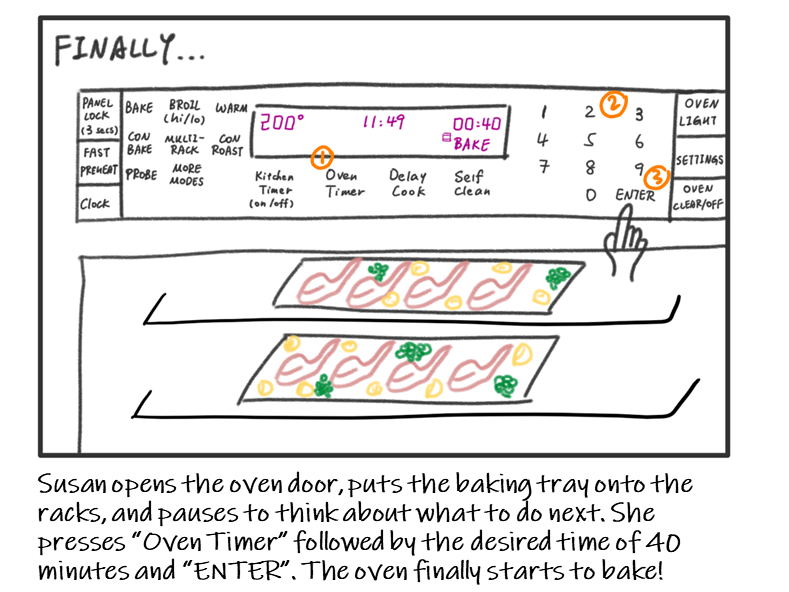 FINALLY...
PANEL LOCK (3 secs)
FAST PREHEAT
Clock
BAKE BROIL (hi/lo) WARM
CON BAKE MULTI-RACK CON ROAST
PROBE MORE MODES
200° 11:49 00:40
BAKE
1
Kitchen Timer (on/off) Oven Timer Delay Cook Self Clean
1 2 3
2
4 5 6
7 8 9
3
0 ENTER
OVEN LIGHT
SETTINGS
OVEN CLEAR/OFF
Susan opens the oven door, puts the baking tray onto the
racks, and pauses to think about what to do next. She
presses “Oven Timer” followed by the desired time of 40
minutes and “ENTER”. The oven finally starts to bake!